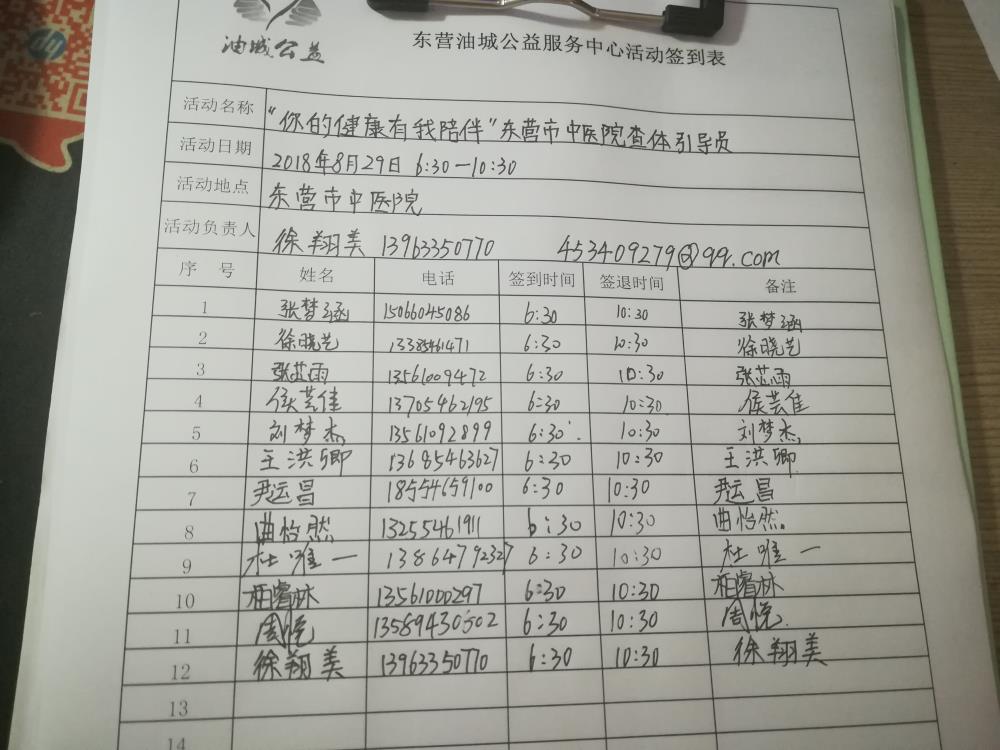 油城公益
东营油城公益服务中心活动签到表
活动名称 "你的健康有我陪伴"东营市中医院查体引导员
活动日期 2018年8月29日 6:30—10:30
活动地点 东营市中医院
活动负责人 徐翔美 13963350770 453409279@qq.com
序 号 姓名 电话 签到时间 签退时间 备注
1 张梦涵 15066045086 6:30 10:30 张梦涵
2 徐晓艺 13385461471 6:30 10:30 徐晓艺
3 张芷雨 13561009472 6:30 10:30 张芷雨
4 侯芸佳 13705462195 6:30 10:30 侯芸佳
5 刘梦杰 13561092899 6:30 10:30 刘梦杰
6 王洪卿 13685463627 6:30 10:30 王洪卿
7 尹运昌 18554659100 6:30 10:30 尹运昌
8 曲怡然 13255461911 6:30 10:30 曲怡然
9 杜唯一 13864792327 6:30 10:30 杜唯一
10 柏睿林 13561000297 6:30 10:30 柏睿林
11 周悦 13589430502 6:30 10:30 周悦
12 徐翔美 13963350770 6:30 10:30 徐翔美
13
14